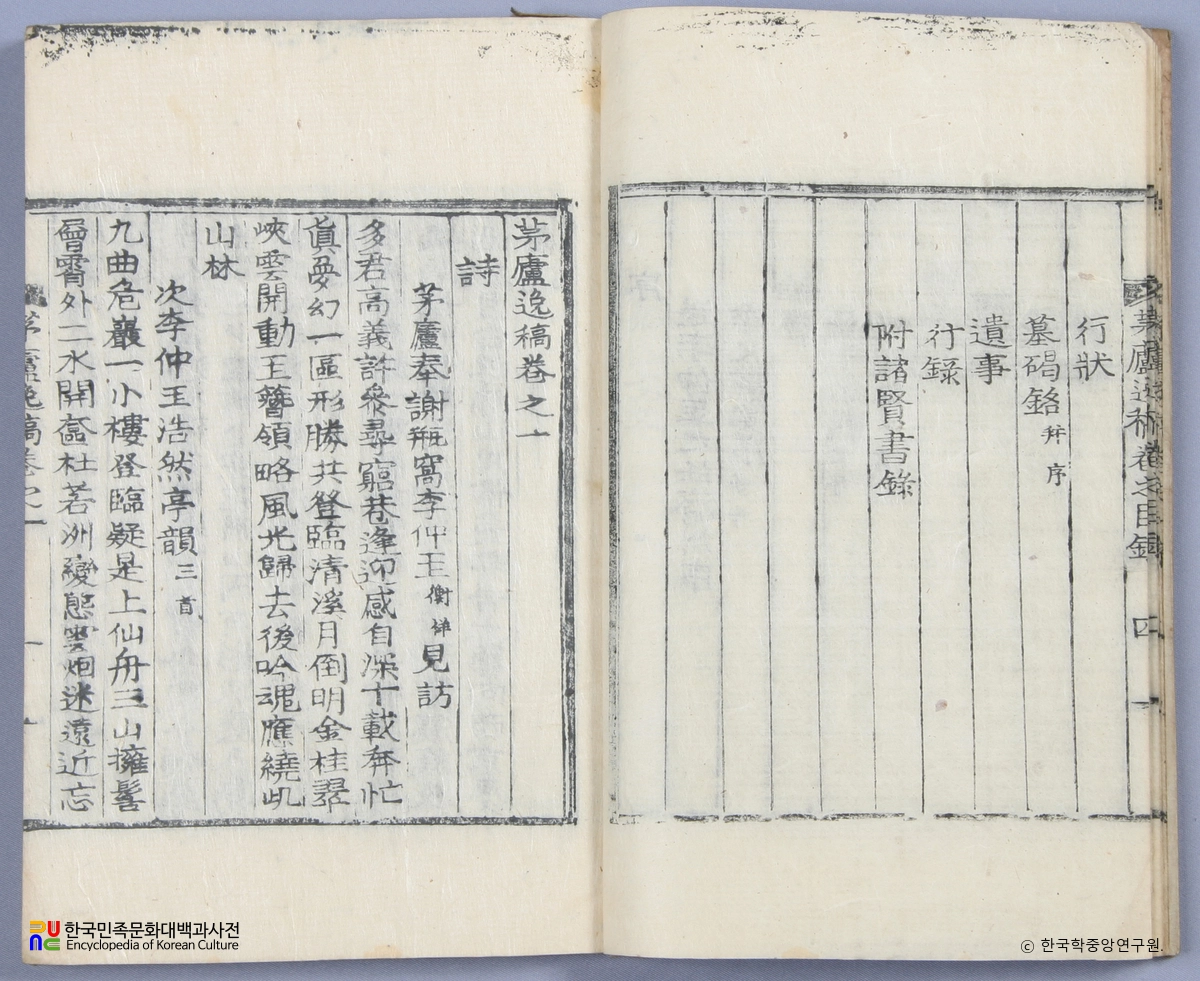 行狀
墓碣銘 幷序
遺事
行錄
附諸賢書錄
茅廬逸稿卷之目錄 四
茅廬逸稿卷之一
詩
茅廬奉謝瓶窩李仲玉衡祥見訪
多君高義許衆尋窮巷逢迎感自深十載奔忙
眞夢幻一區形勝共登臨淸溪月倒明金桂翠
峽雲開動玉簪領略風光歸去後吟魂應繞此
山林
次李仲玉浩然亭韻三首
九曲危巖一小樓登臨疑是上仙舟三山擁髻
層霄外二水開奩杜若洲變態雲烟迷遠近忘
茅廬逸稿卷之一 一
한국민족문화대백과사전
Encyclopedia of Korean Culture
© 한국학중앙연구원.